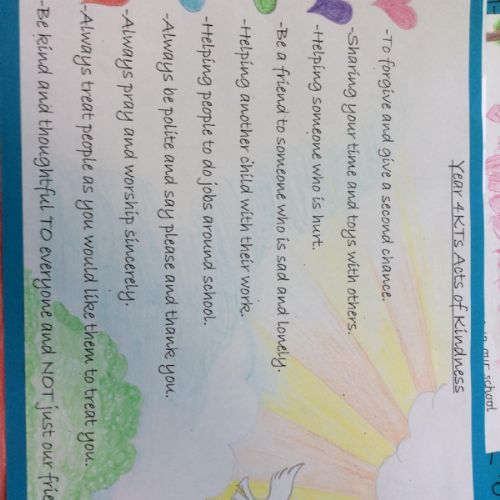 Year 4KTs Acts of Kindness
-To forgive and give a second chance.
-Sharing your time and toys with others.
-Helping someone who is hurt.
-Be a friend to someone who is sad and lonely.
-Helping another child with their work.
-Helping people to do jobs around school.
-Always be polite and say please and thank you.
-Always pray and worship sincerely.
-Always treat people as you would like them to treat you.
-Be kind and thoughtful TO everyone and NOT just our
our school